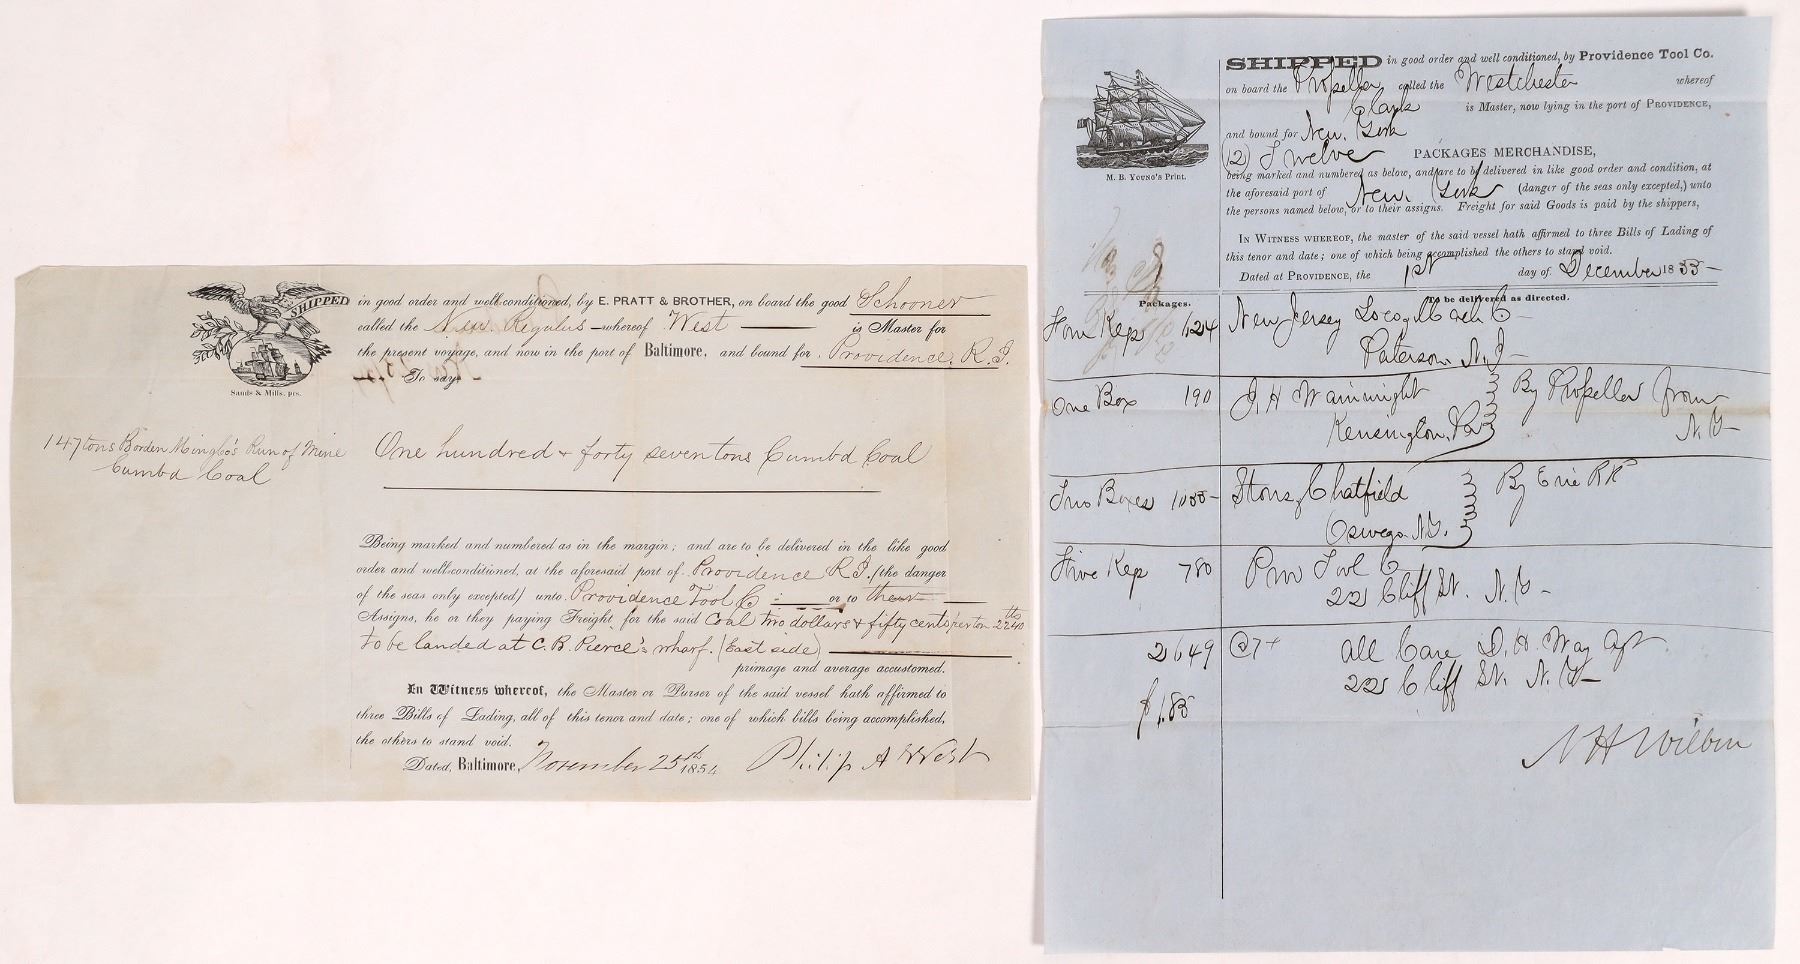 SHIPPED in good order and well conditioned, by E. PRATT & BROTHER, on board the good Schooner
called the New Regulus whereof West is Master for
the present voyage, and now in the port of Baltimore, and bound for Providence, R.I.
To say
Sands & Mills, prs.
147 tons Borden Mining Co's Run of Mine
Cumbd Coal
One hundred & forty seven tons Cumbd Coal
Being marked and numbered as in the margin; and are to be delivered in the like good
order and well-conditioned, at the aforesaid port of Providence R.I. (the danger
of the seas only excepted) unto Providence Tool Co or to their
Assigns, he or they paying Freight for the said Coal two dollars & fifty cents per ton 2240 lbs
to be landed at C.B. Pierce's wharf. (East side)
primage and average accustomed.
In Witness whereof, the Master or Purser of the said vessel hath affirmed to
three Bills of Lading, all of this tenor and date; one of which bills being accomplished,
the others to stand void.
Dated, Baltimore, November 25th 1854 Philip A West
SHIPPED in good order and well conditioned, by Providence Tool Co.
on board the Propeller called the Westchester whereof
Clark is Master, now lying in the port of PROVIDENCE,
and bound for New York
(12) Twelve PACKAGES MERCHANDISE,
being marked and numbered as below, and are to be delivered in like good order and condition, at
the aforesaid port of New York (danger of the seas only excepted,) unto
the persons named below, or to their assigns. Freight for said Goods is paid by the shippers,
IN WITNESS WHEREOF, the master of the said vessel hath affirmed to three Bills of Lading of
this tenor and date; one of which being accomplished the others to stand void.
Dated at PROVIDENCE, the 1st day of December 1855
M. B. YOUNG'S Print.
Packages. To be delivered as directed.
Four Kegs 624 New Jersey Loco & Mach Co
Paterson N.J
One Box 190 J. H Wainwright By Propeller from
Kensington, Pa N.Y
Two Boxes 1055 Stone, Chatfield By Erie RR
Oswego N.Y.
Five Kegs 780 Prov Tool Co
22 Cliff St. N.Y
2649 @7 All Care D. H. Way Agt
22 Cliff St. N.Y
$1.85
N H Wilbur